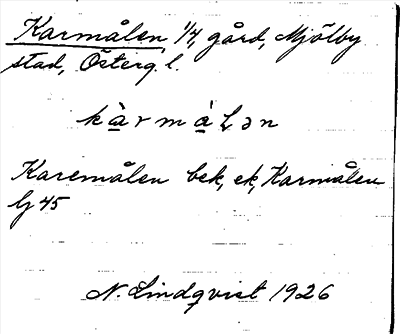 Karmålen 1/4, gård, Mjölby
stad, Österg. l.
kàrmáLən
Karemålen bek, ek, Karmålen
lj 45
N. Lindqvist 1926